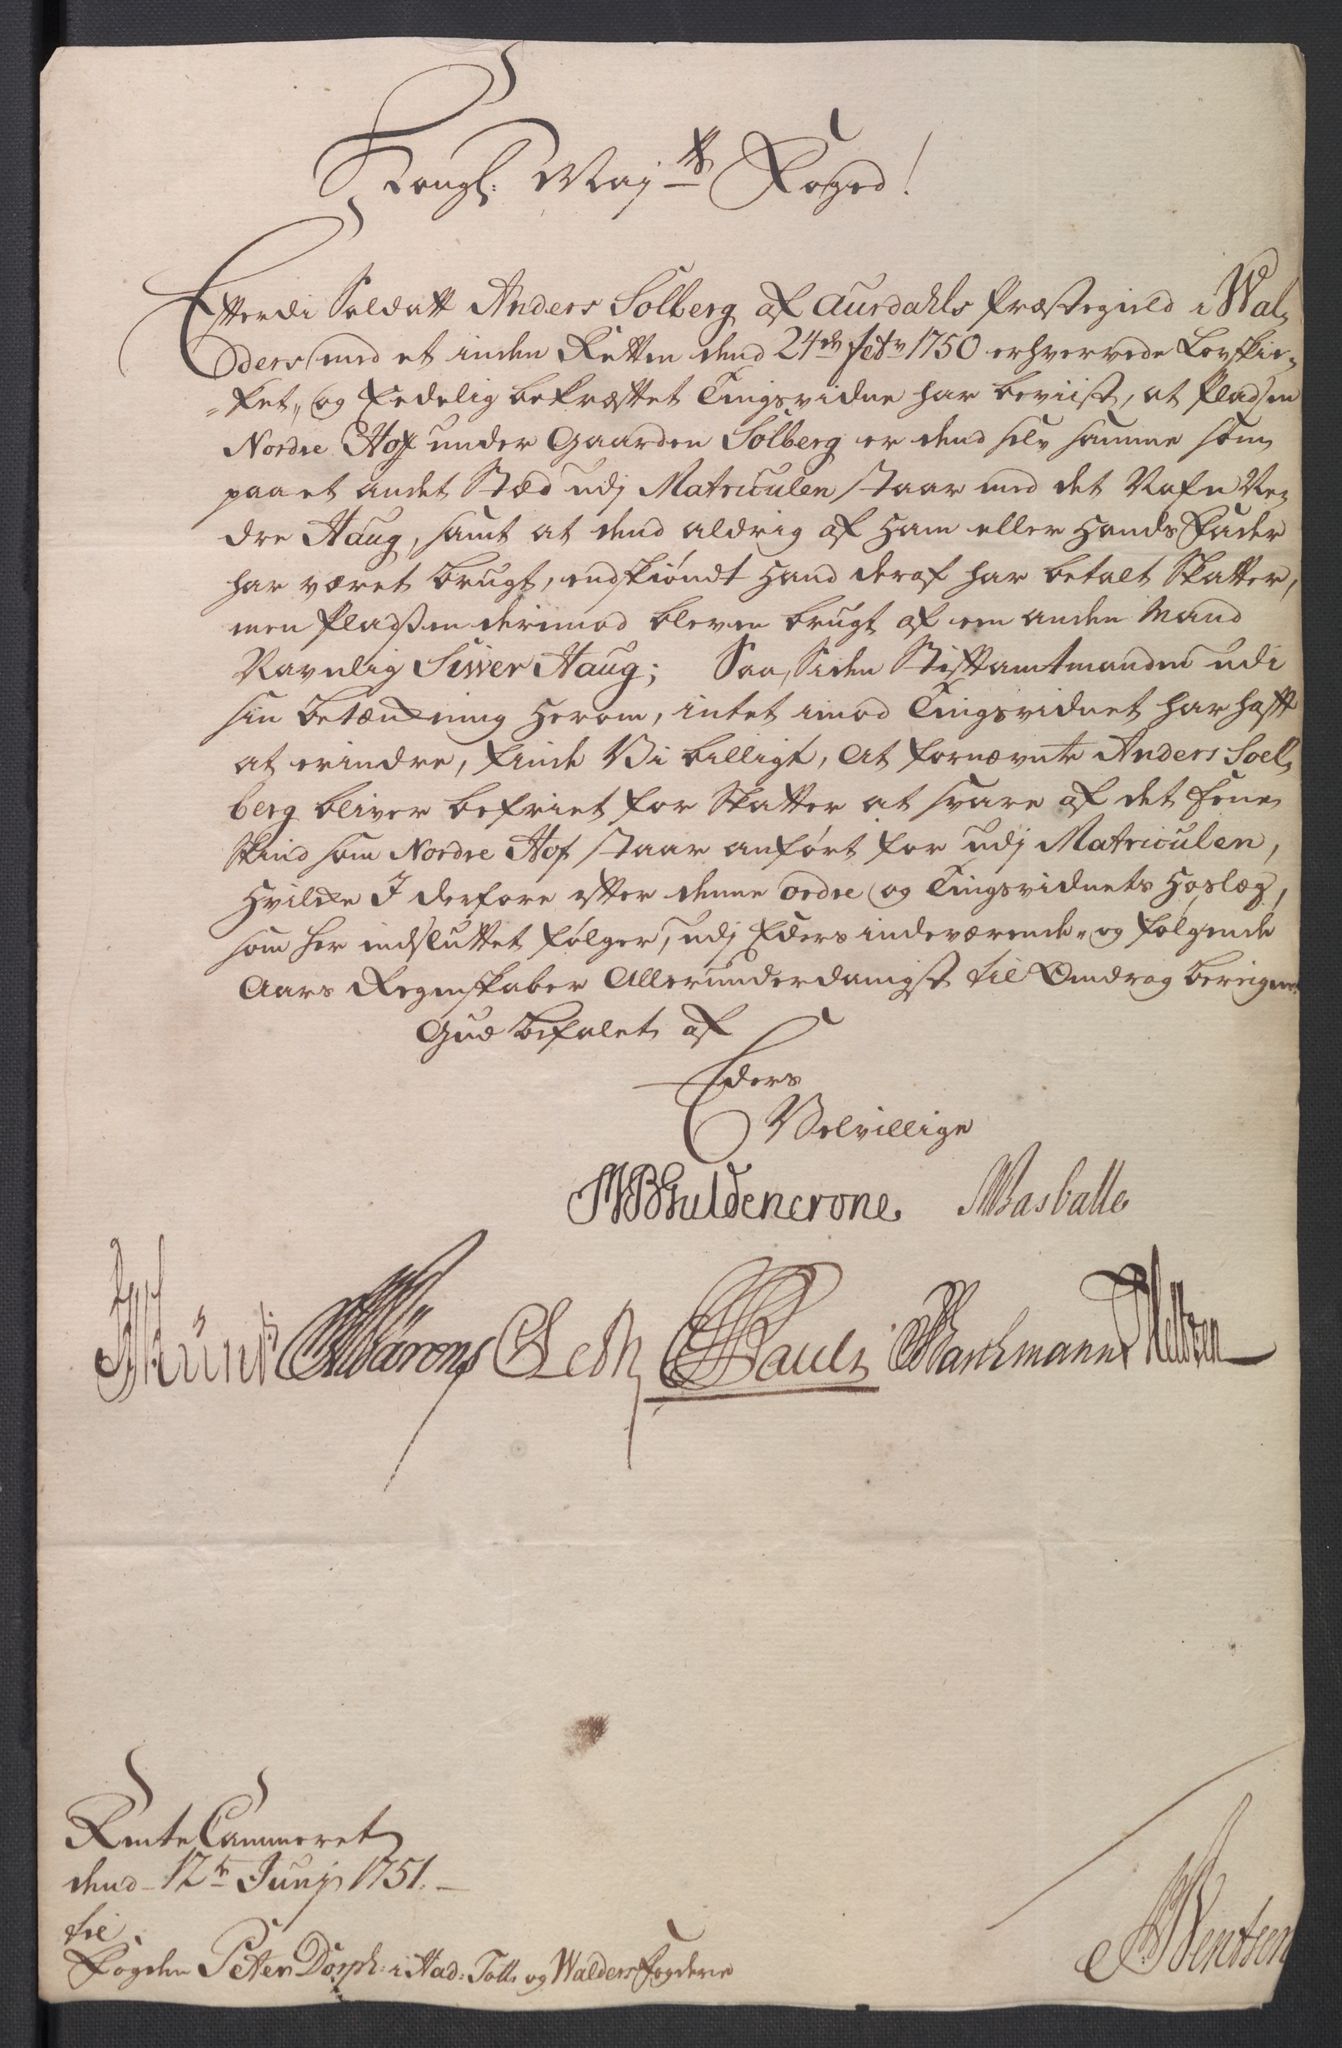 Kongl: Maj.ts Foged!
Efterdi Soldatt Anders Solberg af Aurdahls Præstegield i Wal-
ders med et inden Retten dend 24de Febr 1750 erhvervede Lovskik-
ket, og Eedelig bekræfttet Tingsvidne har beviist, at Pladsen
Nordre Hof under Gaarden Solberg er dend selv samme som
paa et andet Stæd udj Matriculen staar med det Nafn Ne-
dre Haug, samt at dend aldrig af Ham eller Hands Fader
har været brugt, endskiöndt Hand deraf har betalt Skatter,
men Pladsen derimod bleven brugt af een anden Mand
Navnlig Siwer Haug; Saa, Siden Stiftamtmanden udi
sin betænkning herom, intet imod Tingsvidnet har hafft
at erindre, finde Vi billigt, at fornævnte Anders Soel-
berg bliver befriet for Skatter at svare af det Eene
Skind som Nordre Hof staar anført for udj Matriculen,
Hvilke I derfore efter denne ordre og Tingsvidnets Hoslæg,
som her indsluttet følger, udj Eders indeværende- og følgende
Aars Regenskaber Allerunderdanigst til Omdrag beregner.
Gud befalet af
Eders
Velvillige
MBGuldencrone Basballe
Münk Bärens CLeth Pauli Bachmann Meltzen
RenteCammeret
dend 12te Junj 1751.
til
Fogden Peter Dorph: i Had: Toth: og Walders Fogderie
Wentsen